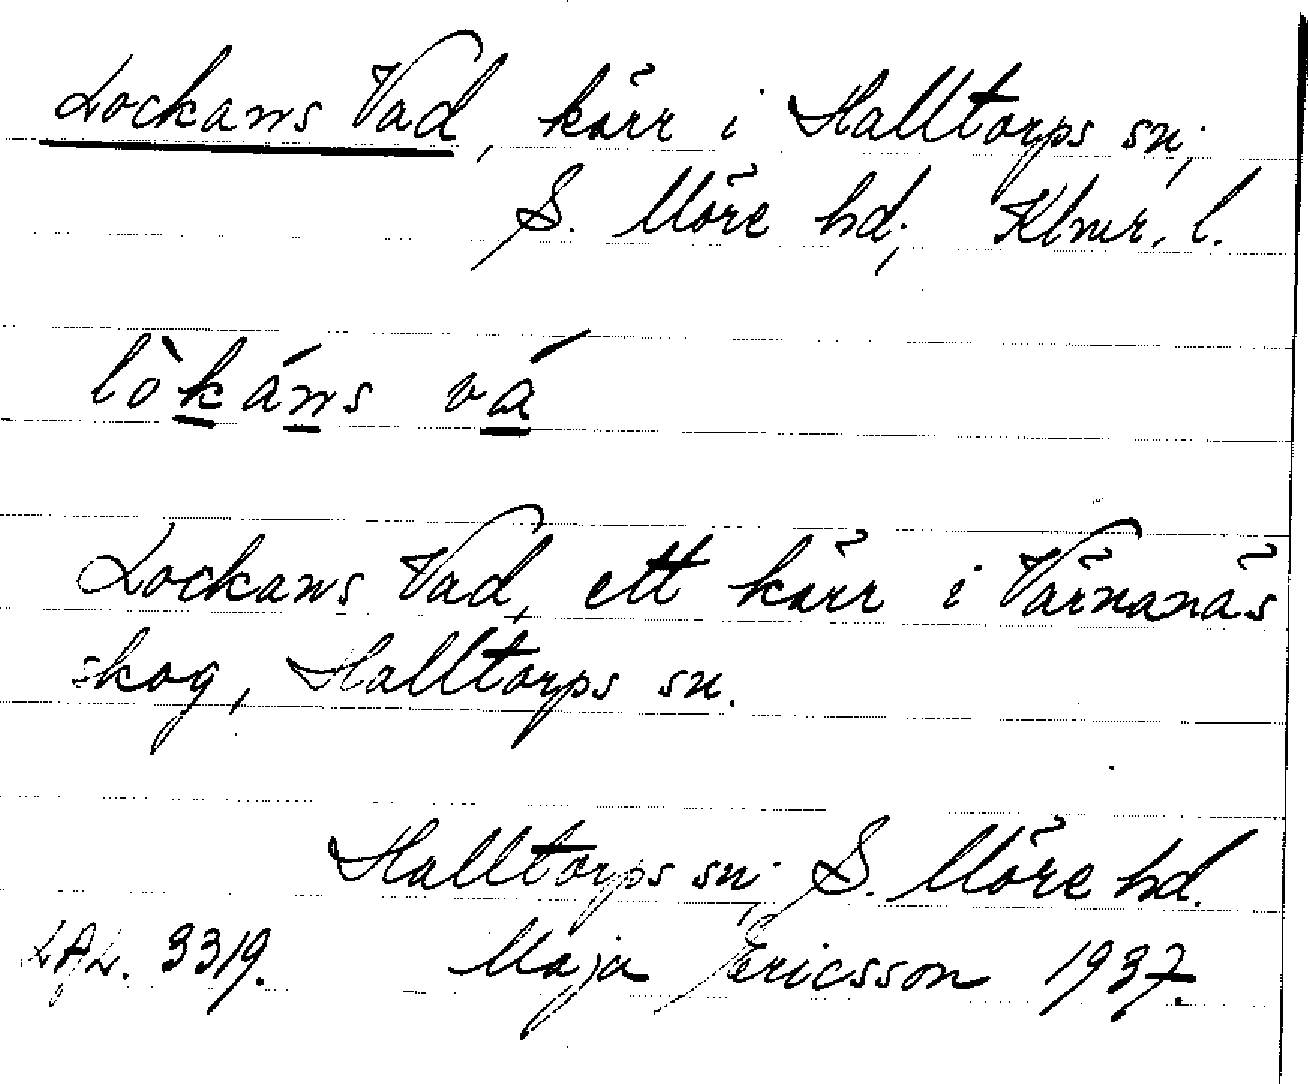 Lockans Vad, kärr i Halltorps sn.,
S. Möre hd., Klmr. l.
lòkáns vá
Lockans Vad, ett kärr i Värnanäs
skog, Halltorps sn.
Halltorps sn., S. Möre hd.
3319. Maja Ericsson 1937.